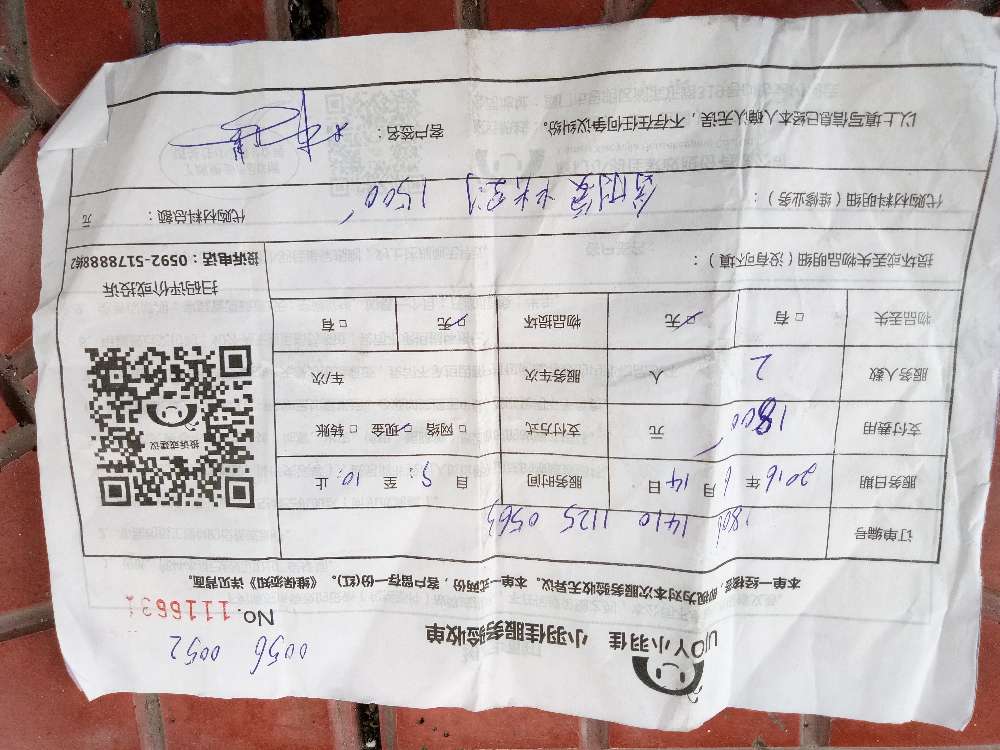 UJOY小羽佳 小羽佳服务验收单
0056 0052
NO.1116631
本单一经核签,即视为对本次服务验收无异议。本单一式两份,客户留存一份(红)。《维保须知》详见背面。
订单编号 1806 1410 1125 0563
服务日期 2016年6月14日 服务时间 自9:至10:止
支付费用 1800元 支付方式 □网络 ☑现金 □转账
服务人数 2人 服务车次 车/次
物品丢失 □有 ☑无 物品损坏 ☑无 □有
投诉或建议
扫码评价或投诉
投诉电话:0592-5178888转2
损坏或丢失物品明细(没有可不填):
代购材料明细(维修业务): 1500 代购材料总额: 元
以上填写信息已经本人确认无误,不存在任何争议纠纷。 客户签名: